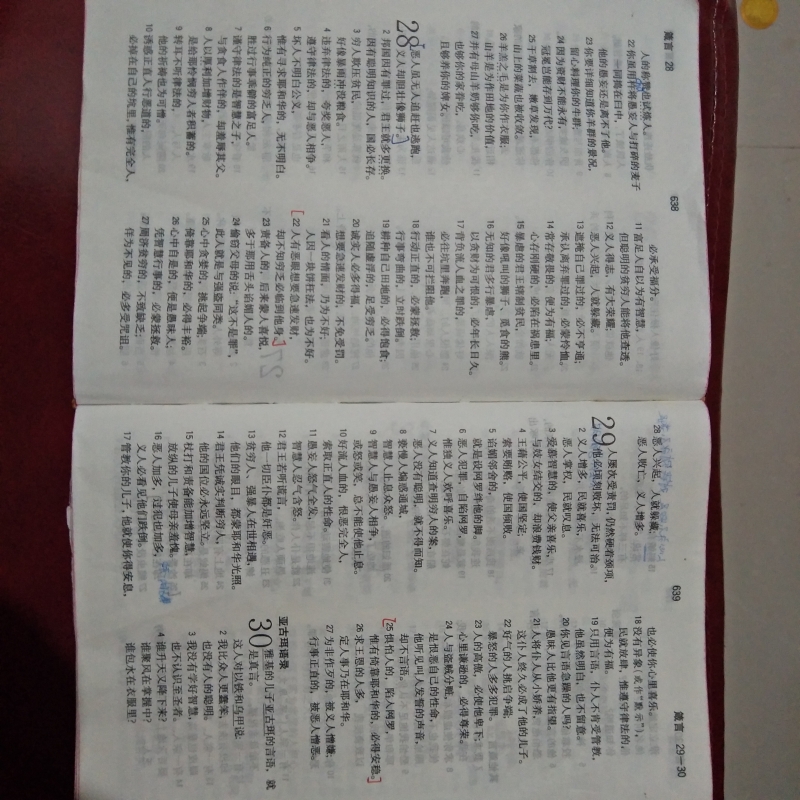 箴言 28
638
人的称赞也试炼人。
22 你虽用杵将愚妄人与打碎的麦子
一同捣在臼中,
他的愚妄还是离不了他。
23 你要详细知道你羊群的景况,
留心料理你的牛群;
24 因为资财不能永有,
冠冕岂能存到万代?
25 干草割去,嫩草发现,
山上的菜蔬也被收敛。
26 羊羔之毛是为你作衣服;
山羊是为作田地的价值,
27 并有母山羊奶够你吃,
也够你的家眷吃,
且够养你的婢女。
28 恶人虽无人追赶也逃跑,
义人却胆壮像狮子。
2 邦国因有罪过,君王就多更换;
因有聪明知识的人,国必长存。
3 穷人欺压贫民,
好像暴雨冲没粮食。
4 违弃律法的,夸奖恶人;
遵守律法的,却与恶人相争。
5 坏人不明白公义,
惟有寻求耶和华的,无不明白。
6 行为纯正的穷乏人,
胜过行事乖僻的富足人。
7 谨守律法的是智慧之子,
与贪食人作伴的,却羞辱其父。
8 人以厚利加增财物,
是给那怜悯穷人者积蓄的。
9 转耳不听律法的,
他的祈祷也为可憎。
10 诱惑正直人行恶道的,
必掉在自己的坑里,惟有完全人,
必承受福分。
11 富足人自以为有智慧,
但聪明的贫穷人能将他查透。
12 义人得志,有大荣耀;
恶人兴起,人就躲藏。
13 遮掩自己罪过的,必不亨通;
承认离弃罪过的,必蒙怜恤。
14 常存敬畏的,便为有福;
心存刚硬的,必陷在祸患里。
15 暴虐的君王辖制贫民,
好像吼叫的狮子、觅食的熊。
16 无知的君多行暴虐,
以贪财为可恨的,必年长日久。
17 背负流人血之罪的,
必往坑里奔跑,
谁也不可拦阻他。
18 行动正直的,必蒙拯救;
行事弯曲的,立时跌倒。
19 耕种自己田地的,必得饱食;
追随虚浮的,足受穷乏。
20 诚实人必多得福,
想要急速发财的,不免受罚。
21 看人的情面,乃为不好;
人因一块饼枉法,也为不好。
22 人有恶眼想要急速发财,
却不知穷乏必临到他身。
23 责备人的,后来蒙人喜悦,
多于那用舌头谄媚人的。
24 偷窃父母的说,“这不是罪”,
此人就是与强盗同类。
25 心中贪婪的,挑起争端;
倚靠耶和华的,必得丰裕。
26 心中自是的,便是愚昧人;
凭智慧行事的,必蒙拯救。
27 周济贫穷的,不致缺乏;
佯为不见的,必多受咒诅。
639
箴言 29—30
28 恶人兴起,人就躲藏;
恶人败亡,义人增多。
29 人屡次受责罚,仍然硬着颈项,
他必顷刻败坏,无法可治。
2 义人增多,民就喜乐,
恶人掌权,民就叹息。
3 爱慕智慧的,使父亲喜乐;
与妓女结交的,却浪费钱财。
4 王藉公平,使国坚定;
索要贿赂,使国倾败。
5 谄媚邻舍的,
就是设网罗绊他的脚。
6 恶人犯罪,自陷网罗;
惟独义人欢呼喜乐。
7 义人知道查明穷人的案;
恶人没有聪明,就不得而知。
8 亵慢人煽惑通城,
智慧人止息众怒。
9 智慧人与愚妄人相争,
或怒或笑,总不能使他止息。
10 好流人血的,恨恶完全人,
索取正直人的性命。
11 愚妄人怒气全发,
智慧人忍气含怒。
12 君王若听谎言,
他一切臣仆都是奸恶。
13 贫穷人、强暴人在世相遇,
他们的眼目,都蒙耶和华光照。
14 君王凭诚实判断穷人,
他的国位必永远坚立。
15 杖打和责备能加增智慧,
放纵的儿子使母亲羞愧。
16 恶人加多,过犯也加多,
义人必看见他们跌倒。
17 管教你的儿子,他就使你得安息,
也必使你心里喜乐。
18 没有异象(或作“默示”),
民就放肆,惟遵守律法的,
便为有福。
19 只用言语,仆人不肯受管教,
他虽然明白,也不留意。
20 你见言语急躁的人吗?
愚昧人比他更有指望。
21 人将仆人从小娇养,
这仆人终久必成了他的儿子。
22 好气的人挑启争端,
暴怒的人多多犯罪。
23 人的高傲,必使他卑下;
心里谦逊的,必得尊荣。
24 人与盗贼分赃,
是恨恶自己的性命,
他听见叫人发誓的声音,
却不言语。
25 惧怕人的,陷入网罗,
惟有倚靠耶和华的,必得安稳。
26 求王恩的人多,
定人事乃在耶和华。
27 为非作歹的,被义人憎嫌;
行事正直的,被恶人憎恶。
亚古珥语录
30 雅基的儿子亚古珥的言语,就
是真言。
这人对以铁和乌甲说:
2 我比众人更蠢笨,
也没有人的聪明。
3 我没有学好智慧,
也不认识至圣者。
4 谁升天又降下来?
谁聚风在掌握中?
谁包水在衣服里?